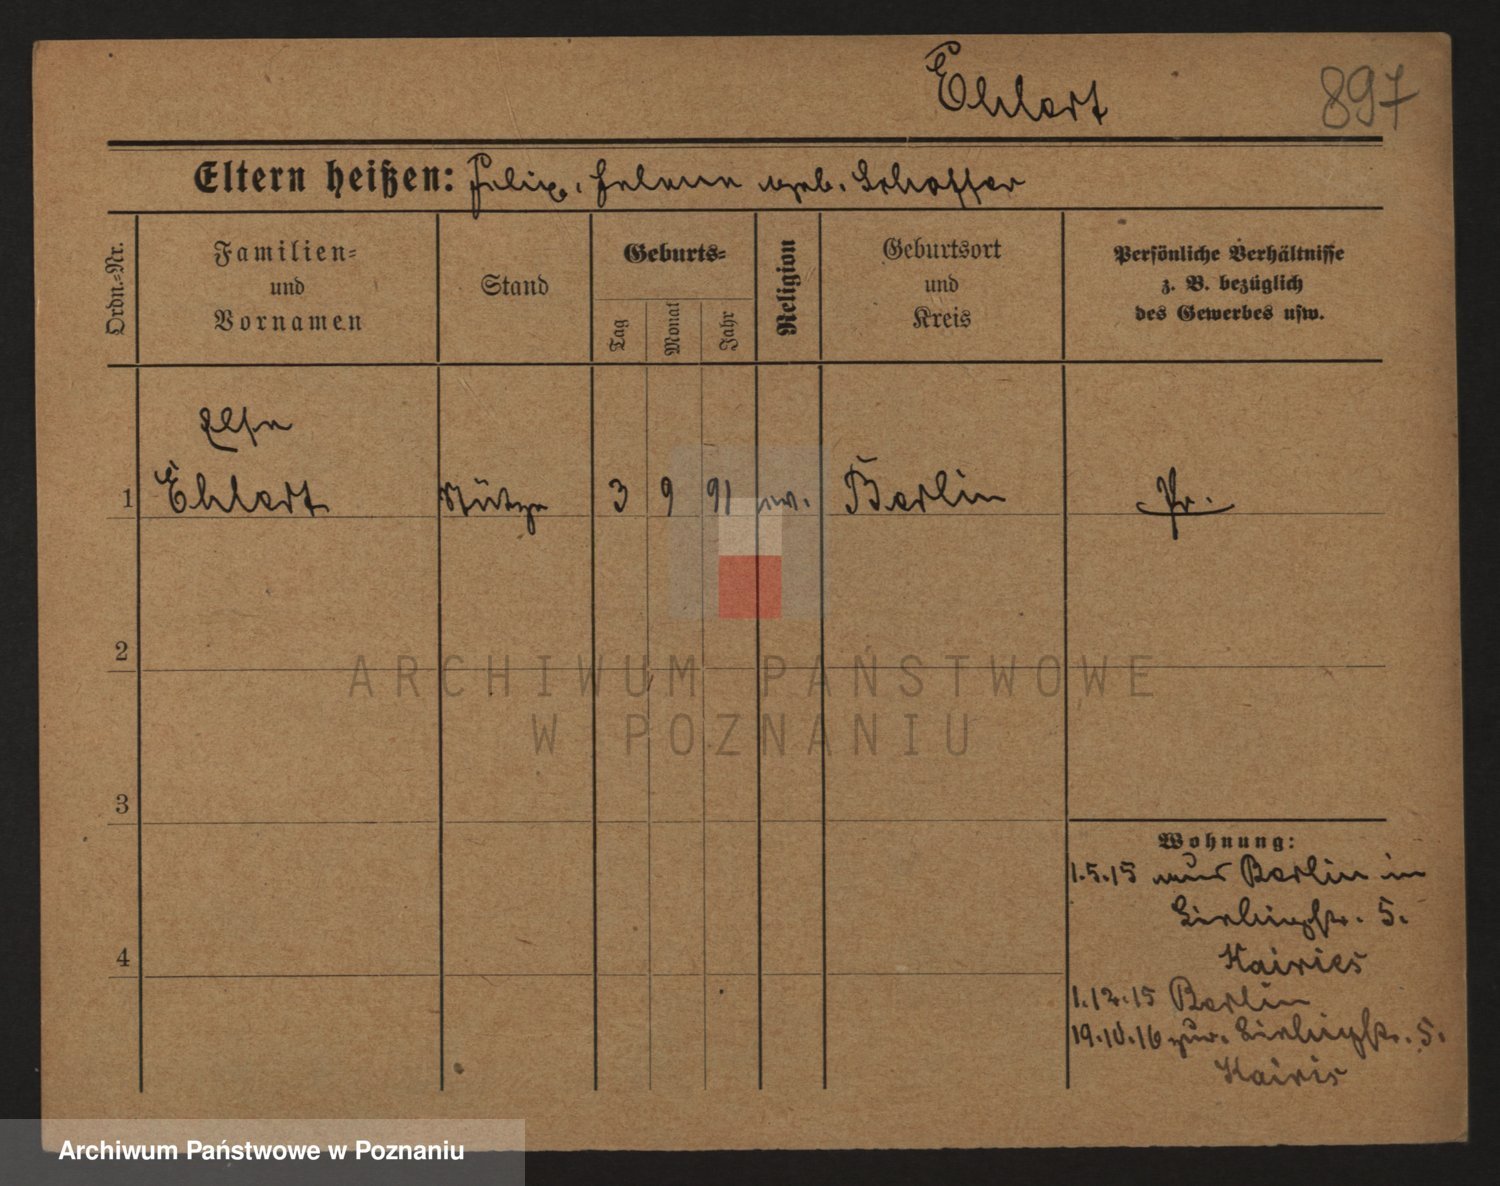 Ehlert
897
Eltern heißen: Felix, Helene geb. Schaffer
Ordn.-Nr.
Familien-
und
Vornamen
Stand
Geburts-
Tag
Monat
Jahr
Religion
Geburtsort
und
Kreis
Persönliche Verhältnisse
z. B. bezüglich
des Gewerbes usw.
Else
1 Ehlert Stütze 3 9 91 ev. Berlin Pr.
2
3
4
Wohnung:
1.5.15 aus Berlin in
5.
Kairies
1.12.15 Berlin
19.10.16 zur. 5.
Kairis
ARCHIWUM PAŃSTWOWE
W POZNANIU
Archiwum Państwowe w Poznaniu